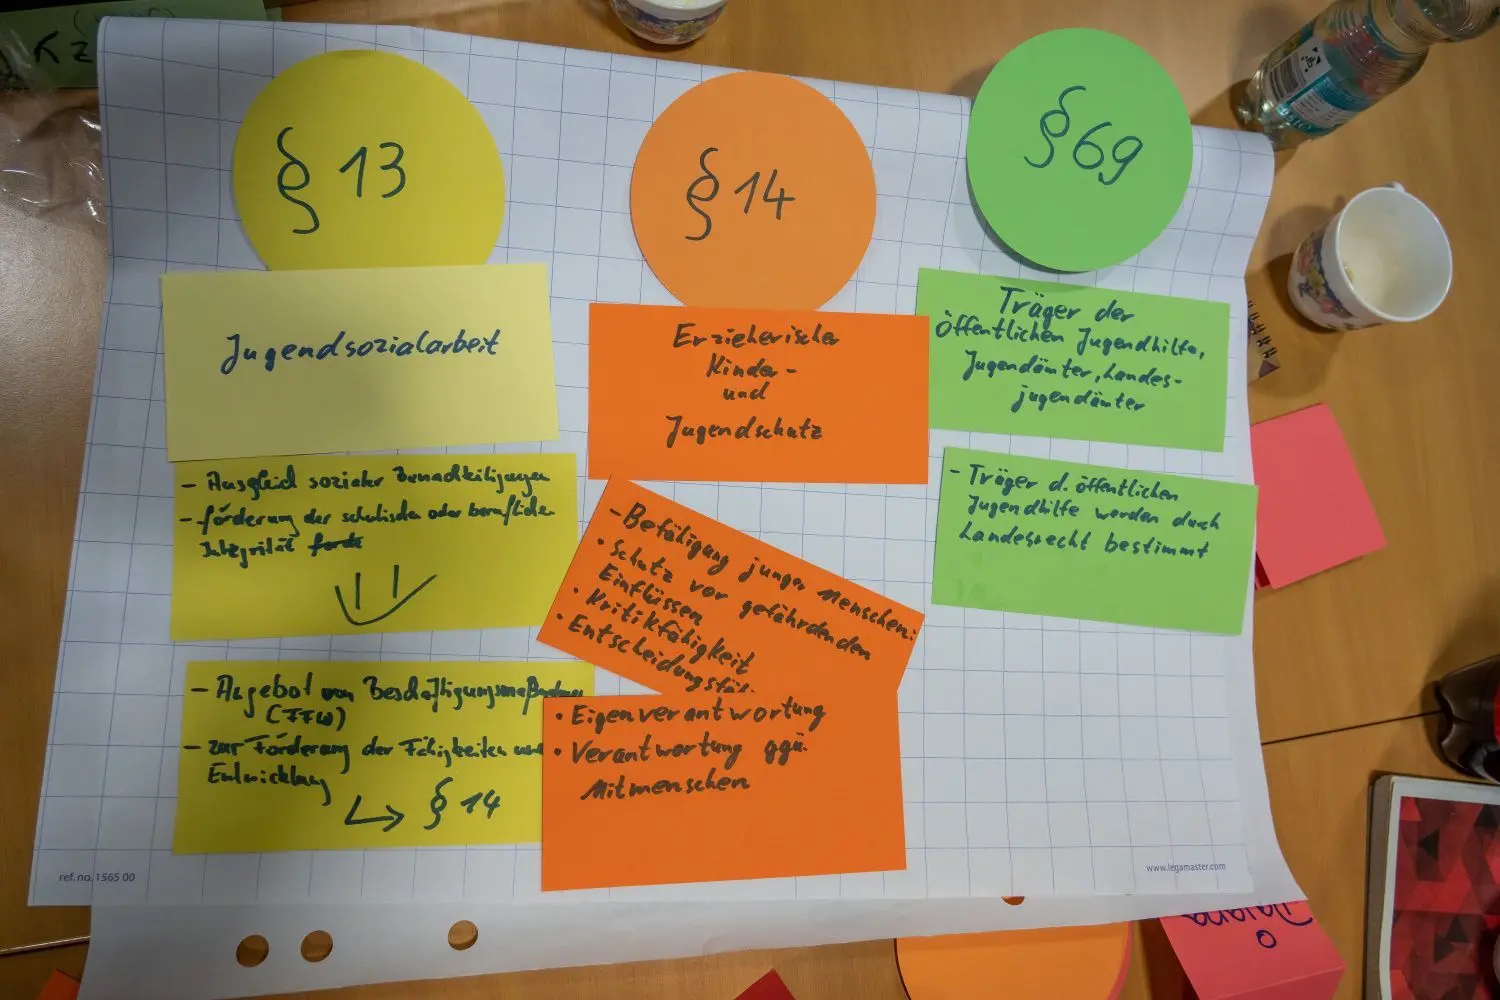 § 13
Jugendsozialarbeit
- Ausgleich sozialer Benachteiligungen
- förderung der schulischen oder berufliche
Integrität
- Angebot von Beschäftigungsmaßnahmen
(FFW)
- zur Förderung der Fähigkeiten und
Entwicklung
↳ § 14
§ 14
Erzieherischer
Kinder-
und
Jugendschutz
- Befähigung junger Menschen:
• Schutz vor gefährdenden
Einflüssen
• Kritikfähigkeit
• Entscheidungsfäh
• Eigenverantwortung
• Verantwortung ggü.
Mitmenschen
§ 69
Träger der
öffentlichen Jugendhilfe,
Jugendämter, Landes-
jugendämter
- Träger d. öffentlichen
Jugendhilfe werden durch
Landesrecht bestimmt
ref. no. 1565 00
www.legamaster.com